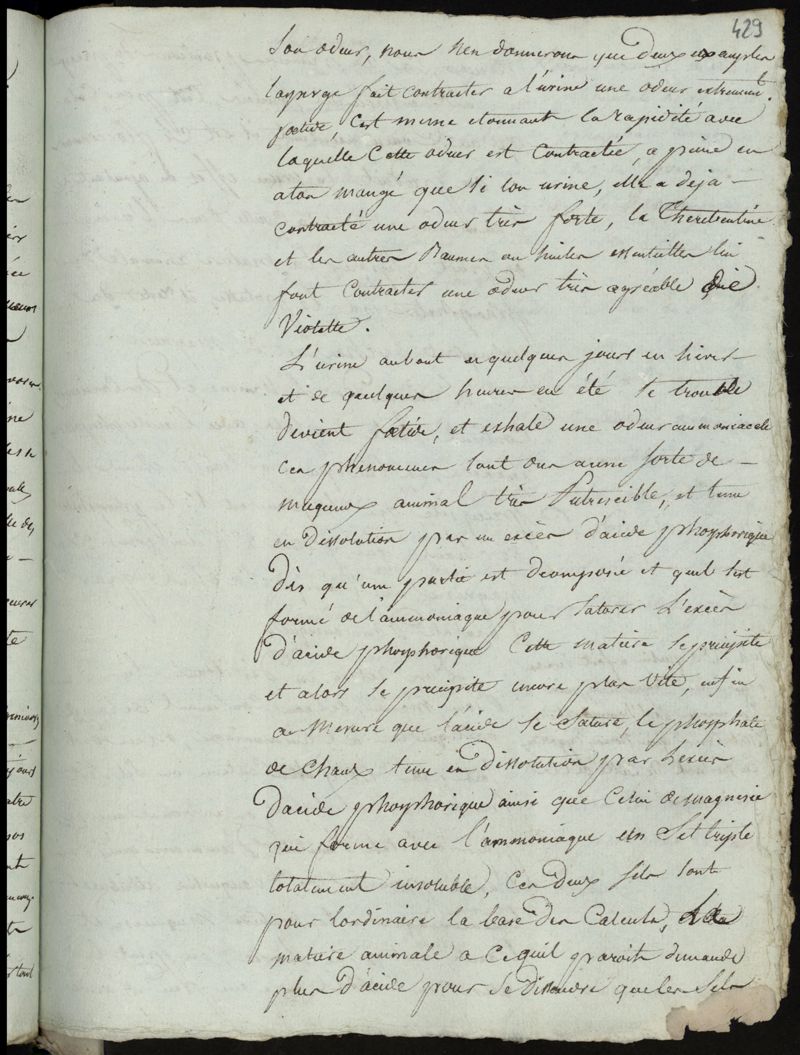 429
son odeur, nous n'en donnerons que deux exemples
l'asperge fait contracter a l'urine une odeur extremement
foetide, c'est meme etonnant la rapidité avec
laquelle cette odeur est contractée, a peine en
aton mangé que si lon urine, elle a deja –
contracté une odeur très forte, la Therebentine
et les autres Baumes ou huiles essentielles lui
font contracter une odeur très agréable de
Violette.
L'urine au bout de quelques jours en hiver –
et de quelques heures en été se trouble
devient foetide, et exhale une odeur ammoniacale
ces phenomenes sont dus a une sorte de –
muqueux animal très putrescible, et tenu
en dissolution par un excès d'acide phosphorique
dès qu'une partie est decomposée et quil s'est
formé de l'ammoniaque pour saturer l'excès
d'acide phosphorique cette matiere se precipite
et alors se precipite encore plus vite, enfin
a mesure que l'acide se sature, le phosphate
de chaux tenu en dissolution par l'excès
d'acide phosphorique ainsi que celui de magnesie
qui forme avec l'ammoniaque un sel triple
totalement insoluble, ces deux sels sont
pour lordinaire la base des calculs, la
matiere animale a ce quil paroit demande
plus d'acide pour se dissoudre que les sels